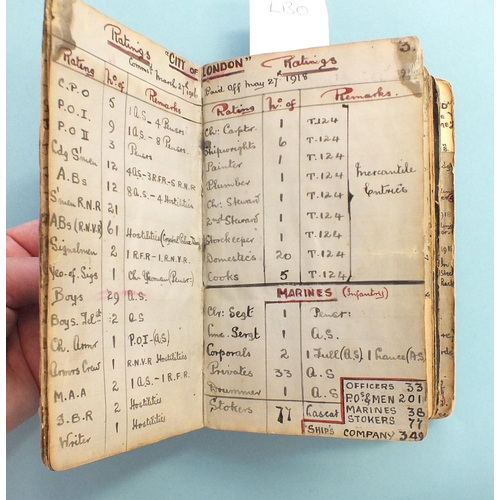 LBO
Ratings "CITY OF
Comm. March 27th 1916
Ratings No. of Remarks
C.P.O 5 1 A.S. - 4 Pensrs
P.O.I. 9 1 A.S. - 8 Pensrs.
P.O II 3 Pensrs
12 4 A.S - 3 R.F.R - 5 R.N.R
A.Bs 12 8 A.S. - 4 Hostilities
S'men R.N.R 21
ABs (R.N.V.R) 61 Hostilities
Signalmen 2 1 R.F.R - 1 R.N.V.R.
Yeo. of Sigs 1 Ch. Yeoman (Penser.)
Boys 29 A.S.
Boys. Tel. 2 A.S
Ch. Armr 1 P.O.I - (A.S)
Armrs Crew 1 R.N.V.R Hostilities
M.A.A 2 1 A.S. - 1 R.F.R.
S.B.R 2 Hostilities
Writer 1 Hostilities
LONDON" Ratings
Paid Off May 27th 1918
Ratings No. of Remarks.
Ch: Carptr 1 T.124
Shipwrights 6 T.124
Painter 1 T.124
Plumber 1 T.124
Ch: Steward 1 T.124
2nd Steward 1 T.124
Storekeeper 1 T.124
Domestics 20 T.124
Cooks 5 T.124
Mercantile
Entries
MARINES (Infantry)
Clr: Sergt 1 Penser:
Sergt 1 A.S.
Corporals 2 1 Full (A.S) 1 Lance (A.S)
Privates 33 A.S
Drummer 1 A.S
Stokers 77 Lascar
OFFICERS 33
P.Os & MEN 201
MARINES 38
STOKERS 77
SHIP'S COMPANY 349